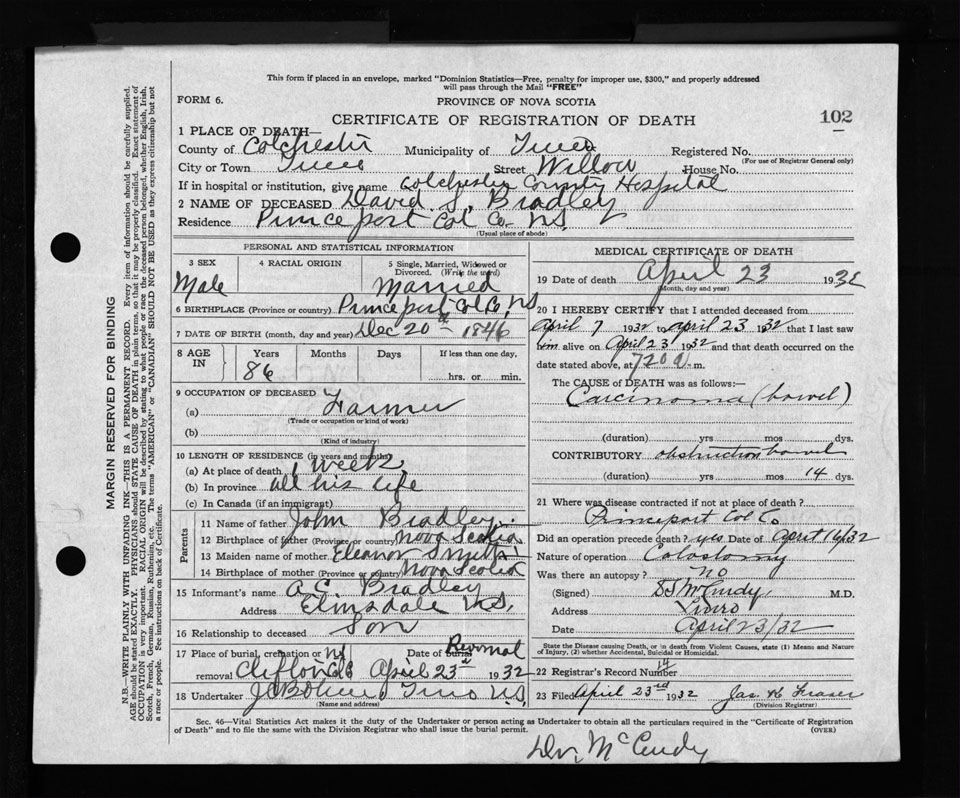 This form if placed in an envelope, marked "Dominion Statistics—Free, penalty for improper use, $300," and properly addressed
will pass through the Mail "FREE"
FORM 6.
PROVINCE OF NOVA SCOTIA
CERTIFICATE OF REGISTRATION OF DEATH
102
1 PLACE OF DEATH—
County of Colchester Municipality of Truro Registered No.
(For use of Registrar General only)
City or Town Truro Street Willow House No.
If in hospital or institution, give name Colchester County Hospital
2 NAME OF DECEASED David S. Bradley
Residence Princeport Col Co. N.S.
(Usual place of abode)
PERSONAL AND STATISTICAL INFORMATION
3 SEX 4 RACIAL ORIGIN 5 Single, Married, Widowed or
Divorced. (Write the word)
Male Married
6 BIRTHPLACE (Province or country) Princeport Col Co, N.S.
7 DATE OF BIRTH (month, day and year) Dec 20th 1846
8 AGE IN Years Months Days If less than one day,
86 hrs. or min.
9 OCCUPATION OF DECEASED
(a) Farmer
(Trade or occupation or kind of work)
(b)
(Kind of industry)
10 LENGTH OF RESIDENCE (in years and months)
(a) At place of death 1 Week
(b) In province all his life
(c) In Canada (if an immigrant)
Parents
11 Name of father John Bradley
12 Birthplace of father (Province or country) Nova Scotia
13 Maiden name of mother Eleanor Smith
14 Birthplace of mother (Province or country) Nova Scotia
15 Informant's name A. C. Bradley
Address Elmsdale N.S.
16 Relationship to deceased Son
17 Place of burial, cremation or N.S. Date of burial Removal
removal Clifton April 23rd 1932
18 Undertaker Truro N.S.
(Name and address)
MEDICAL CERTIFICATE OF DEATH
19 Date of death April 23 1932
(Month, day and year)
20 I HEREBY CERTIFY that I attended deceased from
April 7 1932 to April 23 1932 that I last saw
him alive on April 23 1932 and that death occurred on the
date stated above, at 720 a m.
The CAUSE of DEATH was as follows:
Carcinoma (bowel)
(duration) yrs mos dys.
CONTRIBUTORY obstruction bowel
(duration) yrs mos 14 dys.
21 Where was disease contracted if not at place of death?
Princeport Col Co
Did an operation precede death? yes Date of April 16/32
Nature of operation Colostomy
Was there an autopsy? no
(Signed) McCurdy M.D.
Address Truro
Date April 23/32
State the Disease causing Death, or in death from Violent Causes, state (1) Means and Nature
of Injury, (2) whether Accidental, Suicidal or Homicidal.
22 Registrar's Record Number 14
23 Filed April 23rd 1932 Jas H Fraser
(Division Registrar)
Sec. 46—Vital Statistics Act makes it the duty of the Undertaker or person acting as Undertaker to obtain all the particulars required in the "Certificate of Registration
of Death" and to file the same with the Division Registrar who shall issue the burial permit. (OVER)
Dr. McCurdy
MARGIN RESERVED FOR BINDING
N.B.—WRITE PLAINLY WITH UNFADING INK—THIS IS A PERMANENT RECORD. Every item of information should be carefully supplied.
AGE should be stated EXACTLY. PHYSICIANS should STATE CAUSE OF DEATH in plain terms, so that it may be properly classified. Exact statement of
OCCUPATION is very important. RACIAL ORIGIN will be described by stating to what people or race the deceased person belonged, whether English, Irish,
Scotch, French, German, Russian, Ruthenian, etc. The terms "AMERICAN" or "CANADIAN" SHOULD NOT BE USED as they express citizenship but not
a race or people. See instructions on back of Certificate.